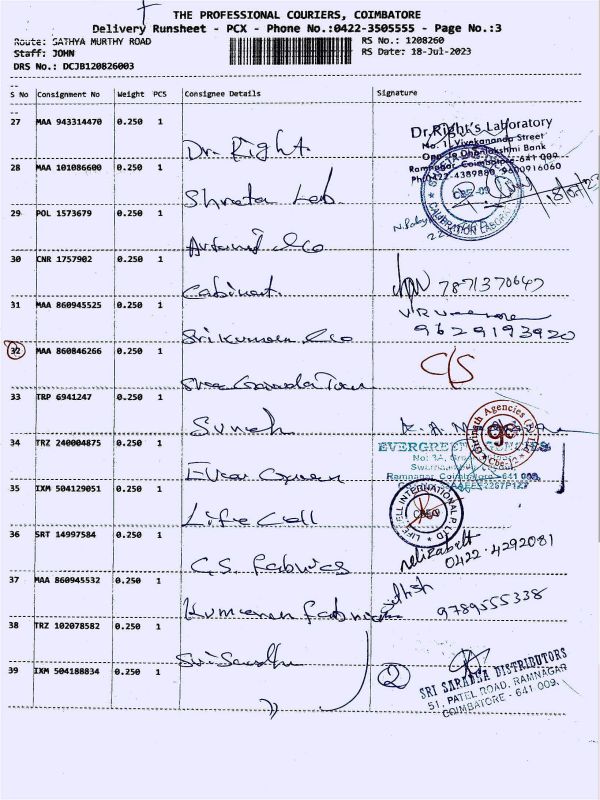 THE PROFESSIONAL COURIERS, COIMBATORE
Delivery Runsheet - PCX - Phone No.:0422-3505555 - Page No.:3
Route: SATHYA MURTHY ROAD
RS No.: 1208260
Staff: JOHN
RS Date: 18-Jul-2023
DRS No.: DCJB120826003
S No Consignment No Weight PCS Consignee Details Signature
27 MAA 943314470 0.250 1
Dr. Right
Dr.Right's Laboratory
No. 1, Vivekananda Street
Opp. to Dhanalakshmi Bank
Ramnagar, Coimbatore-641 009
Ph:0422-4389880, 9600916060
28 MAA 101086600 0.250 1
Lab
CBE-09
CALIBRATION LABORA
29 POL 1573679 0.250 1
& Co
30 CNR 1757902 0.250 1
Cabinet
7871370647
31 MAA 860945525 0.250 1
Srikumaran & Co
9629193920
32 MAA 860846266 0.250 1
C/S
33 TRP 6941247 0.250 1
Suresh
Agencies (P) Ltd
Cbe-
34 TRZ 240004875 0.250 1
Ever Green
EVERGREEN AGENCIES
No: 3A,
Ramnagar, Coimbatore - 641 009.
35 IXM 504129051 0.250 1
Life Cell
LIFECELL INTERNATIONAL P. LTD
CBE-9
36 SRT 14997584 0.250 1
C.S. Fabrics
relizabelt
0422-4292081
37 MAA 860945532 0.250 1
Kumaran Fabrics
9789555338
38 TRZ 102078582 0.250 1
39 IXM 504188834 0.250 1
2
SRI SARADHA DISTRIBUTORS
51, PATEL ROAD, RAMNAGAR
COIMBATORE - 641 009.